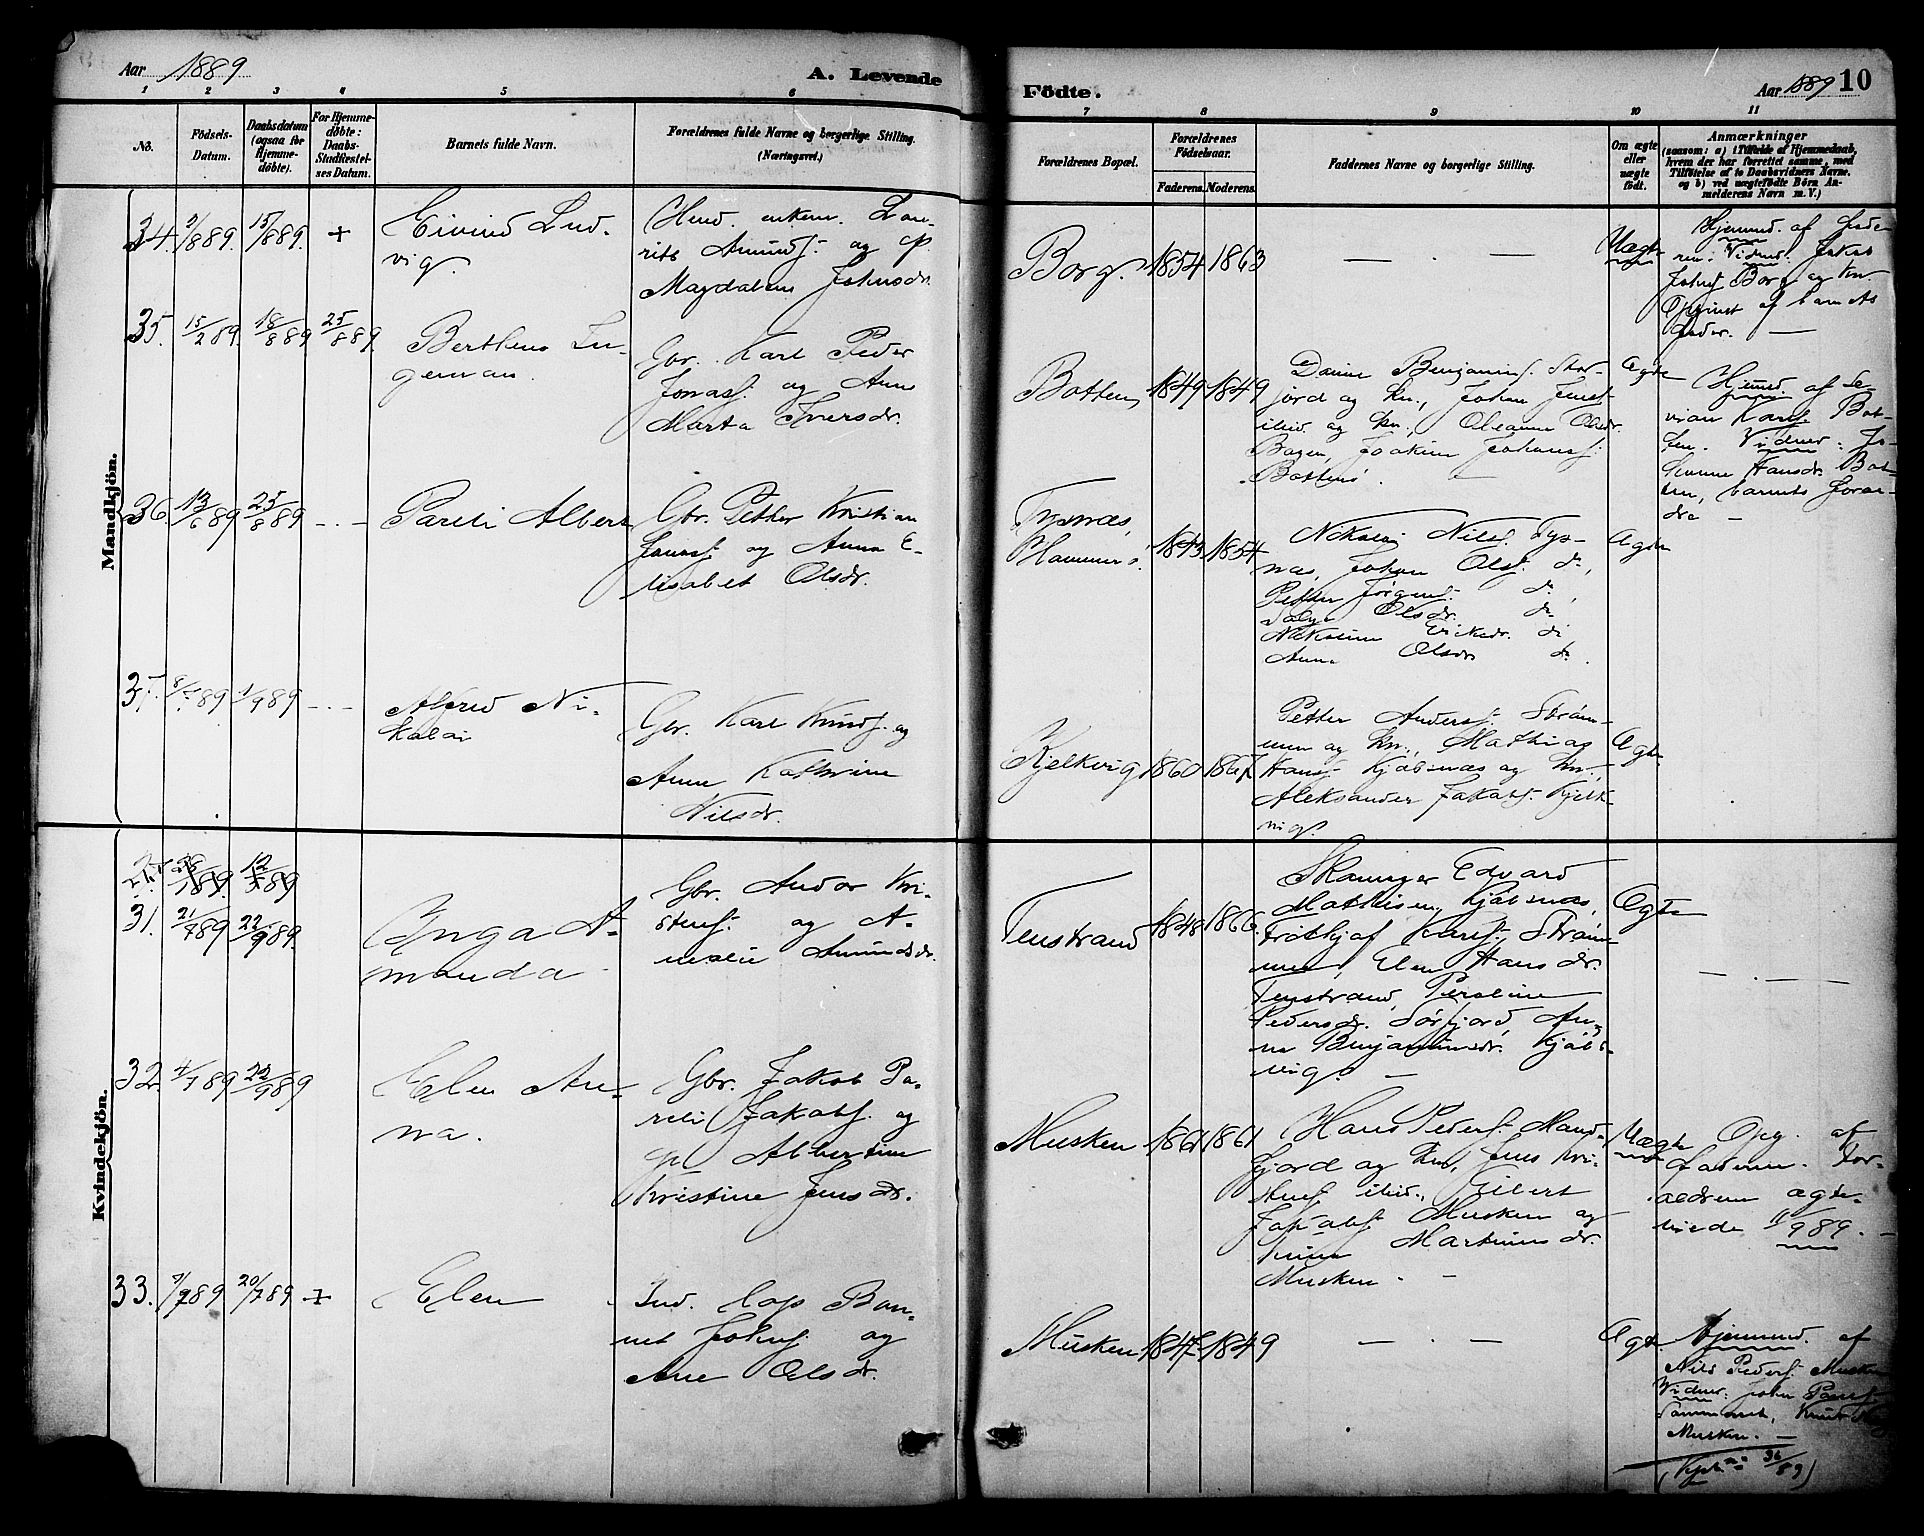 Aar 1889
A. Levende
Födte.
Aar 1889 10
1 2 3 4 5 6 7 8 9 10 11
No.
Födsels-
Datum.
Daabsdatum
(ogsaa for
Hjemme-
döbte).
For Hjemme-
döbte:
Daabs-
Stadfæstel-
ses Datum.
Barnets fulde Navn.
Forældrenes fulde Navne og borgerlige Stilling.
(Næringsvei.)
Forældrenes Bopæl.
Forældrenes
Födselsaar.
Faderens. Moderens.
Faddernes Navne og borgerlige Stilling.
Om ægte
eller
uægte
födt.
Anmærkninger
(saasom: a) i Tilfælde af Hjemmedaab,
hvem der har forrettet samme, med
Tilföielse af to Daabsvidners Navne.
og b) ved uægtefödte Börn An-
melderens Navn m. V.)
Mandkjön.
34. 889. 15/889. +
Eivind Lud-
vig.
Lau-
rits Amunds. og
Magdalena Johnsdr.
Borg. 1854 1863
— . —
Uægte
Hjemmed. af
Vidner: Jakob
Johns. Borg og
Opgivet af barnets
Fader. —
35. 15/2 89. 18/8 89 25/8 89.
Bertheus In-
geman.
Gbr. Karl Peder
Jonass. og Anne
Marta Iversdr.
Botten, 1849 1849
Benjamins. Stor-
jord og kn., Johan Jenss.
ibid. og kn., Oleanna Olsdr.
Bogen, Joakim Johans.
Botten.
Ægte
Hjemmed. af Se-
vian Karls. Bot-
ten. Vidner: Jo-
Hansdr. Bot-
ten, barnets foræl-
dre —
36. 13/6 89 25/8 89 - . -
Pareli Albert
Gbr. Petter Kristian
Jonass. og Anna E-
lisabet Olsdr.
Tysnæs,
Hammerö. 1843 1854
Nikolai Nils. Tys-
næs, Johan Ols. do,
Petter Jörgens. do,
Olsdr. do
Nikoline Eriksdr. do
Anna Olsdr. do.
Ægte
37. 89 1/9 89 - . -
Alfred Ni-
kolai
Gbr. Karl Knuds. og
Anne Kathrine
Nilsdr.
Kjelkvig 1860 1867
Petter Anders. Ström-
men og kn., Mathias
Hans. Kjöbsnæs og kn.,
Aleksander Jakobs. Kjelk-
vig.
Ægte
Kvindekjön.
31. 21/7 89 22/9 89
Inga A-
manda
Gbr. Andor Kri-
stens. og A-
malie Amundsdr.
Tenstrand 1848 1866.
Edvard
Mathisen, Kjöbsnæs,
Frithjof Karls., Ström-
men, Elen Hansdr.
Tenstrand, Pernline
Pedersdr. Sörfjord, An-
na Benjaminsdr. Kjöbs-
vig. —
Ægte
— . —
32. 4/7 89 22/9 89
Elen An-
na.
Gbr. Jakob Pa-
reli Jakobs. og
gp. Albertine
Kristine Jensdr.
Musken 1861 1861
Hans Peders. Mand-
fjord og kn., Jens Kri-
stens. ibid.,
Jakobs. Musken og
Martinusdr.
Musken. —
Uægte
Opg. af
faderen. For-
ældrene ægte-
viede 11/9 89. —
33. 7/7 89 20/7 89 +
Elen
Ind. lap. Bon-
net Johns. og
Ane Olsdr.
Musken 1847 1849
— . —
Ægte
Hjemmed. af
Nils Peders. Musken
Vidner: John Pauls.
Sammested, Knud
Musken. —